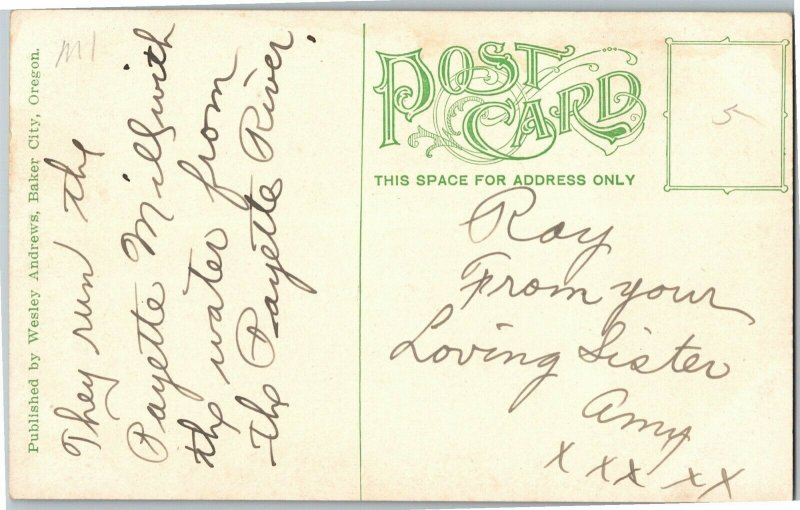 Published by Wesley Andrews, Baker City, Oregon.
M1
They run the
Payette Mills with
the water from
the Payette River.
POST CARD
THIS SPACE FOR ADDRESS ONLY
5
Roy
From your
Loving Sister
Amy
x x x x x